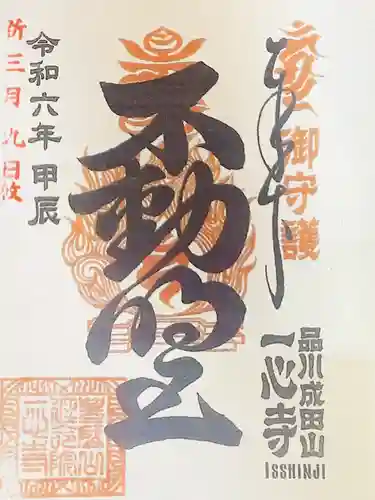 奉拝
御守護
品川成田山
一心寺
ISSHINJI
不動明王
令和六年甲辰
三月九日